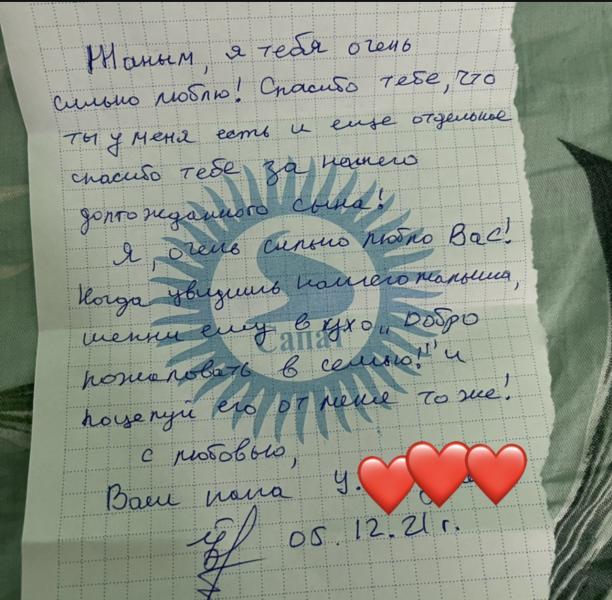 Жаным, я тебя очень
сильно люблю! Спасибо тебе, что
ты у меня есть и еще отдельное
спасибо тебе за нашего
долгожданного сына!
Я, очень сильно люблю Вас!
Когда увидишь нашего малыша,
шепни ему в ухо „Добро
пожаловать в семью!" и
поцелуй его от меня тоже!
с любовью,
Ваш папа У.
05.12.21 г.
Сапат